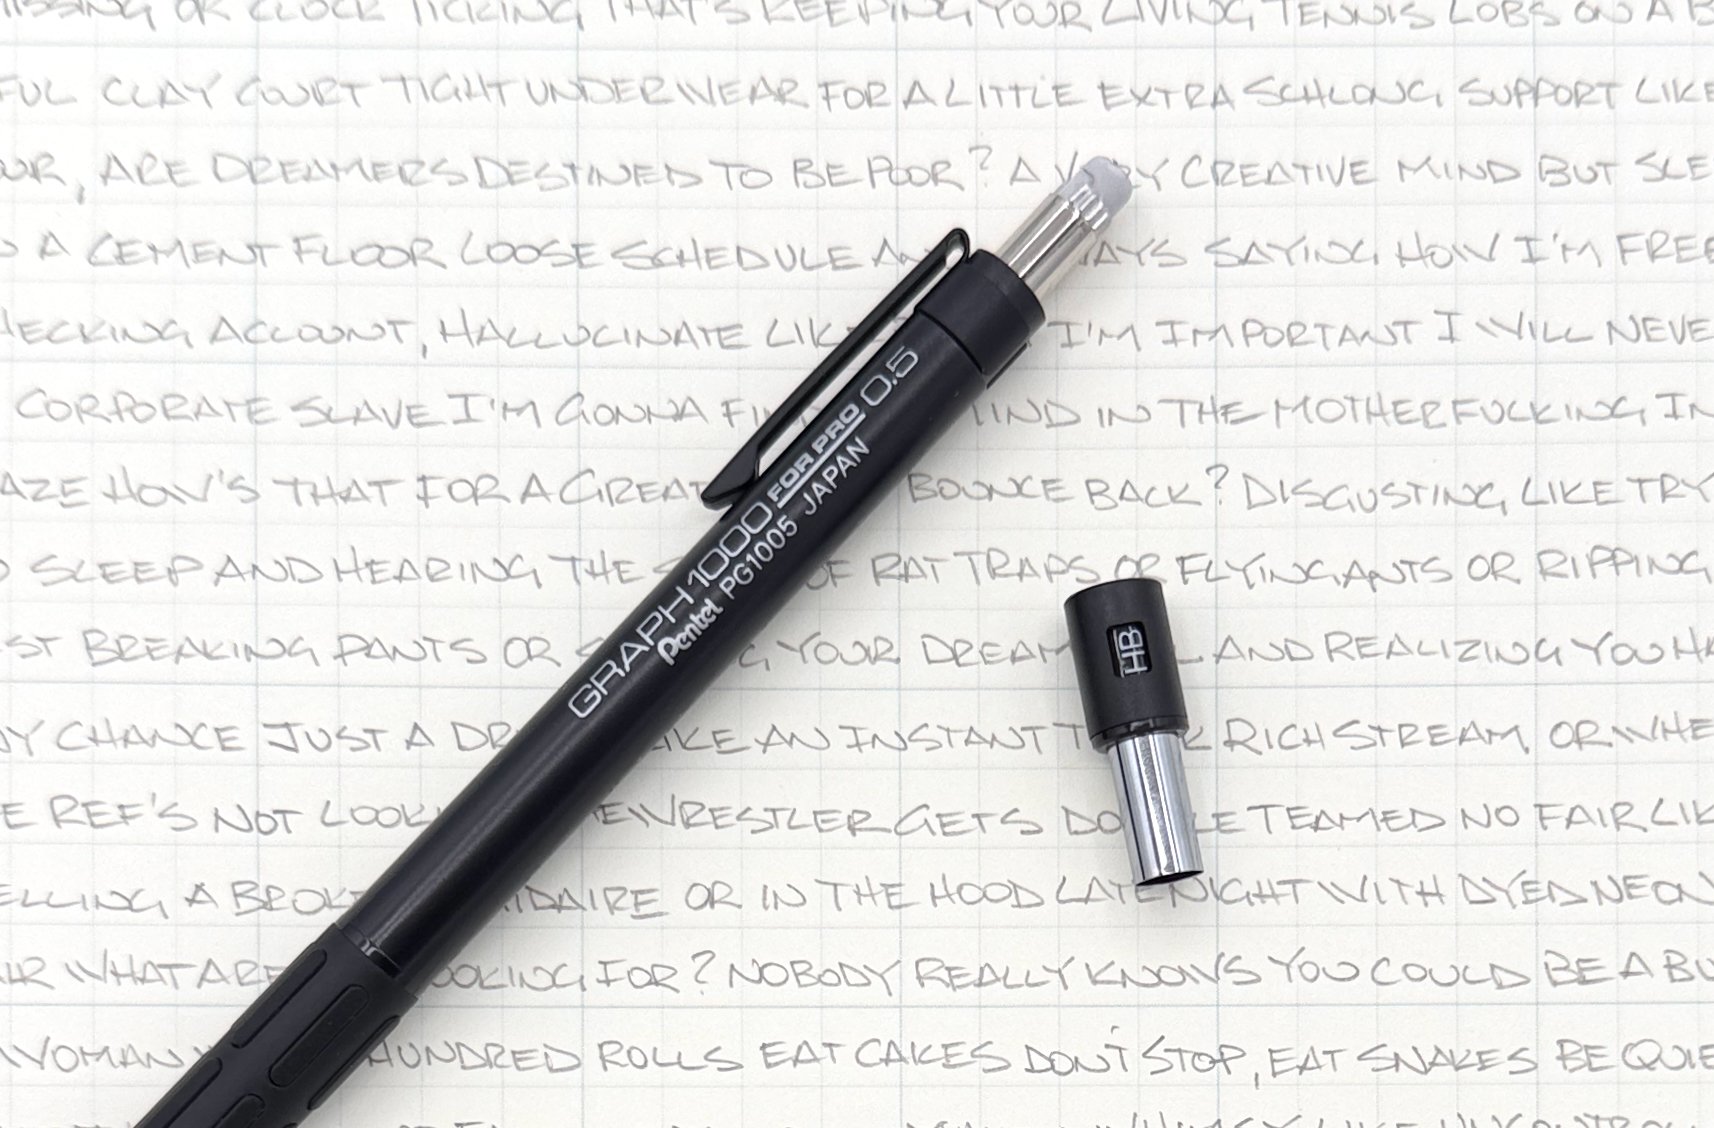 OR CLOCK TICKING THAT'S KEEPING YOUR LIVING TENNIS LOBS ON A
FUL CLAY COURT TIGHT UNDERWEAR FOR A LITTLE EXTRA SCHLONG SUPPORT LIKE
ARE DREAMERS DESTINED TO BE POOR? A CREATIVE MIND BUT
A CEMENT FLOOR LOOSE SCHEDULE SAYING HOW I'M FREE
ACCOUNT, HALLUCINATE I'M IMPORTANT I WILL NEVE
CORPORATE SLAVE I'M GONNA IN THE MOTHERFUCKING
HOW'S THAT FOR A GREAT BOUNCE BACK? DISGUSTING LIKE TRY
SLEEP AND HEARING THE OF RAT TRAPS OR FLYING ANTS OR RIPPING
BREAKING PANTS OR YOUR DREAM AND REALIZING YOU
CHANCE JUST A AN INSTANT RICH STREAM, OR WHE
REF'S NOT WRESTLER GETS TEAMED NO FAIR
A OR IN THE HOOD LATE NIGHT WITH DYED NEON
WHAT ARE FOR? NOBODY REALLY KNOWS YOU COULD BE A
WOMAN HUNDRED ROLLS EAT CAKES DON'T STOP, EAT SNAKES BE
GRAPH 1000 FOR PRO 0.5
Pentel PG1005 JAPAN
HB